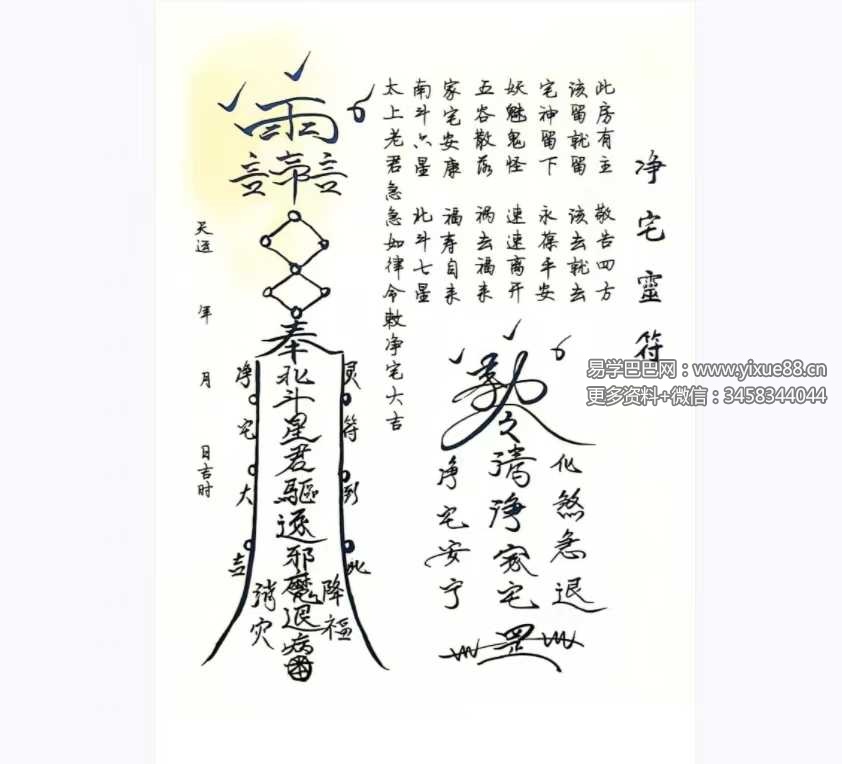 净宅靈符
此房有主 敬告四方
该留就留 该去就去
宅神留下 永葆平安
妖魅鬼怪 速速离开
五谷散落 祸去福来
家宅安康 福寿自来
南斗六星 北斗七星
太上老君急急如律令敕净宅大吉
雨
言帝言
奉北斗星君驅逐邪魔退病
灵符到此
净宅大吉
降福
消灾
天运 年 月 日吉时
清净家宅
化煞急退
净宅安宁
罡
易学巴巴网：www.yixue88.cn
更多资料+微信：3458344044